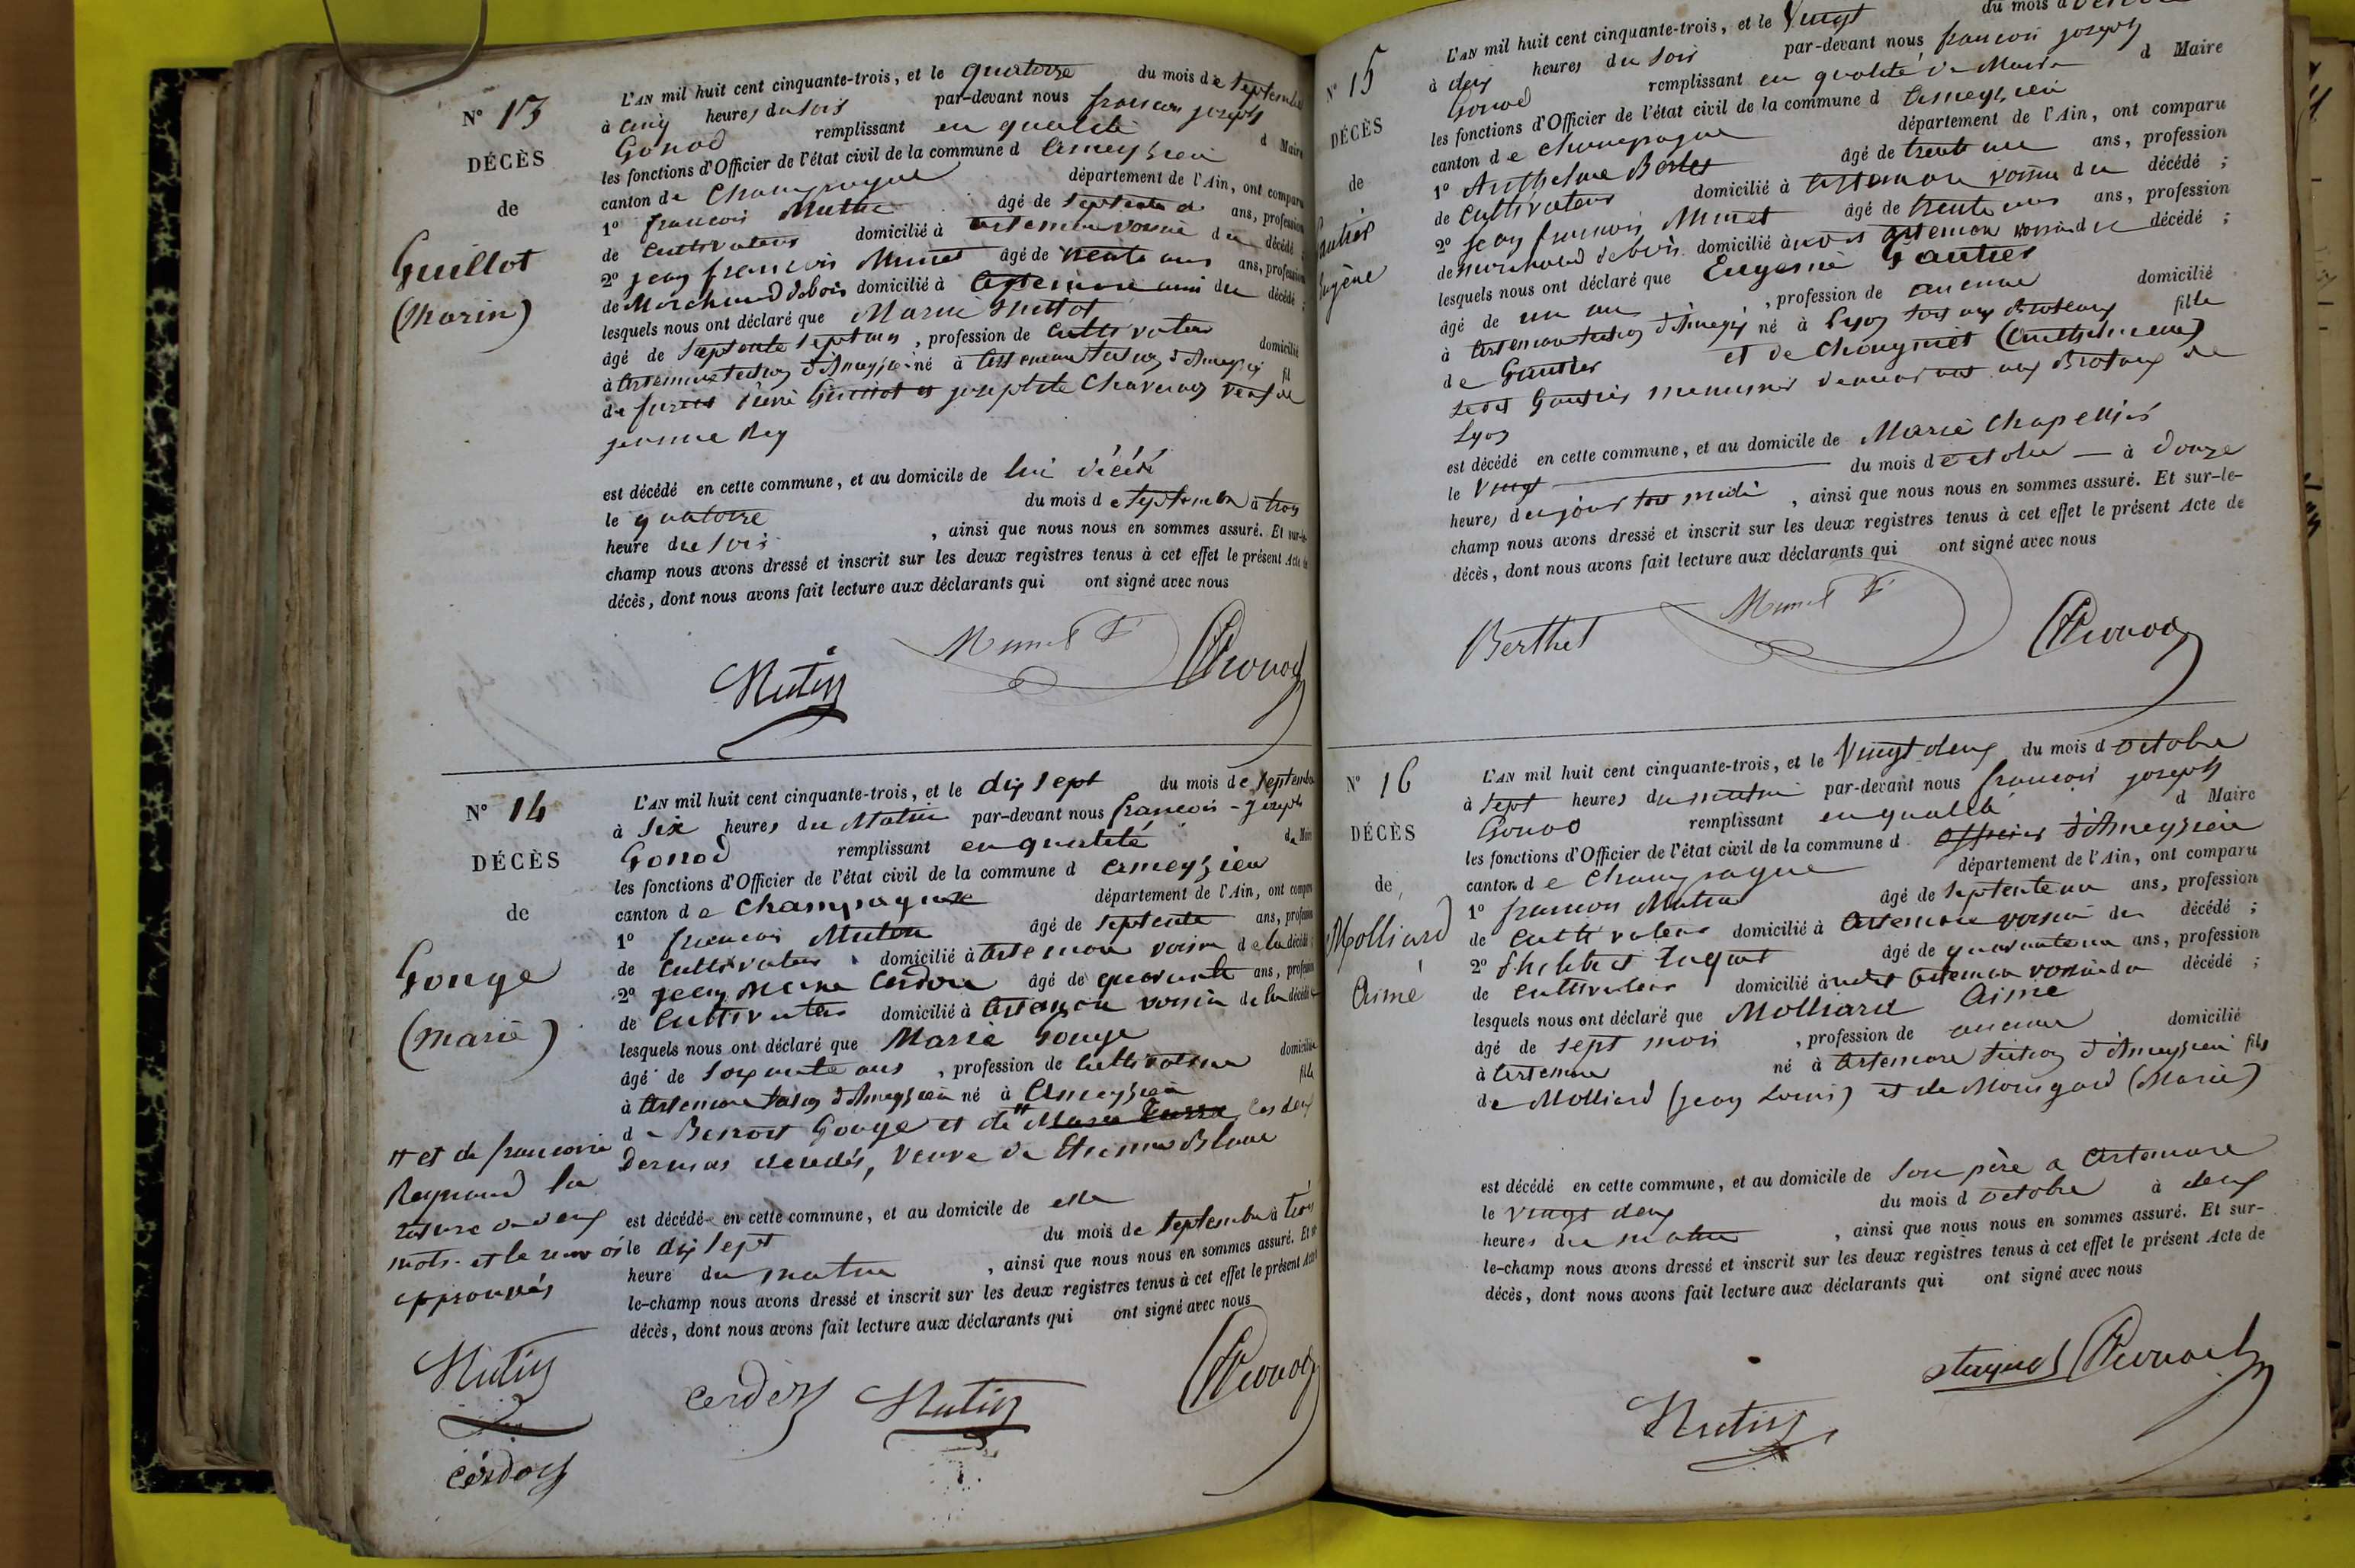 N° 13
DÉCÈS
de
Guillot
(Marin)
L'AN mil huit cent cinquante-trois, et le quatorze du mois de Septembre
à cinq heures du soir par-devant nous francois joseph
Gonod remplissant en qualité d Maire
les fonctions d'Officier de l'état civil de la commune d ameyzieu
canton de Champagne département de l'Ain, ont comparu
1° francois Mutin âgé de septente ans, profession
de cultivateur domicilié à artemare voisin du décédé ;
2° jean francois Munet âgé de trente ans, profession
de Marchand debois domicilié à artemare ami du décédé ;
lesquels nous ont déclaré que Marin Guillot
âgé de Septente Sept ans, profession de cultivateur domicilié
à artemare d'Ameyzieu né à artemare d'Ameyzieu fil
de pierre Guillot et josephte veuf de
jeanne Rey
est décédé en cette commune, et au domicile de lui décédé
le quatorze du mois de Septembre à trois
heure du Soir, ainsi que nous nous en sommes assuré. Et sur-le-
champ nous avons dressé et inscrit sur les deux registres tenus à cet effet le présent Acte de
décès, dont nous avons fait lecture aux déclarants qui ont signé avec nous
Mutin Munet F Gonod
N° 14
DÉCÈS
de
Gouge
(marie)
L'AN mil huit cent cinquante-trois, et le dix sept du mois de Septembre
à Six heures du Matin par-devant nous francois-joseph
Gonod remplissant en qualité de Maire
les fonctions d'Officier de l'état civil de la commune d ameyzieu
canton de Champagne département de l'Ain, ont comparu
1° francois Mutin âgé de septente ans, profession
de cultivateur domicilié à artemare voisin de la décédé ;
2° jean Marie Cerdon âgé de quarante ans, profession
de Cultivateur domicilié à artemare voisin de la décédé
lesquels nous ont déclaré que Marie Gouge
âgé de Soixante ans, profession de cultivatrice domicilié
à artemare d'Ameyzieu né à Ameyzieu fille
de Benoit Gouge et de Marie les deux
Derniers décédés, veuve de Etienne Blanc
et de francoise
Reynaud la
rature de deux
mots et le renvoi
approuvés
est décédé en cette commune, et au domicile de elle
le dix sept du mois de Septembre à trois
heure du matin, ainsi que nous nous en sommes assuré. Et sur-
le-champ nous avons dressé et inscrit sur les deux registres tenus à cet effet le présent Acte
décès, dont nous avons fait lecture aux déclarants qui ont signé avec nous
Mutin
cerdon
cerdon Mutin Gonod
N° 15
DÉCÈS
de
Gautier
Eugène
L'AN mil huit cent cinquante-trois, et le Vingt du mois d octobre
à deux heures du soir par-devant nous francois joseph
Gonod remplissant en qualité de Maire d Maire
les fonctions d'Officier de l'état civil de la commune d ameyzieu
canton de champagne département de l'Ain, ont comparu
1° Anthelme Bertet âgé de trente un ans, profession
de cultivateur domicilié à artemare voisin du décédé ;
2° jean francois Munet âgé de trente ans ans, profession
de marchand debois domicilié à artemare voisin du décédé ;
lesquels nous ont déclaré que Eugenie Gautier
âgé de un an, profession de aucune domicilié
à artemare d'Ameyzieu né à Lyon aux Broteaux fille
de Gautier et de (anthelmeine)
Gautier menuisier demeurant aux Brotaux de
Lyon
est décédé en cette commune, et au domicile de Marie Chapellier
le vingt du mois de octobre à Douze
heures du jour midi, ainsi que nous nous en sommes assuré. Et sur-le-
champ nous avons dressé et inscrit sur les deux registres tenus à cet effet le présent Acte de
décès, dont nous avons fait lecture aux déclarants qui ont signé avec nous
Berthet Munet F Gonod
N° 16
DÉCÈS
de
Molliard
Aimé
L'AN mil huit cent cinquante-trois, et le Vingt deux du mois d octobre
à sept heures du matin par-devant nous francois joseph
Gonod remplissant en qualité d Maire
les fonctions d'Officier de l'état civil de la commune d officier d'Ameyzieu
canton de Champagne département de l'Ain, ont comparu
1° francois Mutin âgé de septente un ans, profession
de cultivateur domicilié à artemare voisin du décédé ;
2° âgé de quarante un ans, profession
de cultivateur domicilié à artemare voisin du décédé ;
lesquels nous ont déclaré que Molliard Aimé
âgé de sept mois, profession de aucune domicilié
à artemare né à artemare d'Ameyzieu fils
de Molliard (jean Louis) et de (Marie)
est décédé en cette commune, et au domicile de Son père a artemare
le vingt deux du mois d octobre à deux
heures du matin, ainsi que nous nous en sommes assuré. Et sur-
le-champ nous avons dressé et inscrit sur les deux registres tenus à cet effet le présent Acte de
décès, dont nous avons fait lecture aux déclarants qui ont signé avec nous
Mutin Gonod